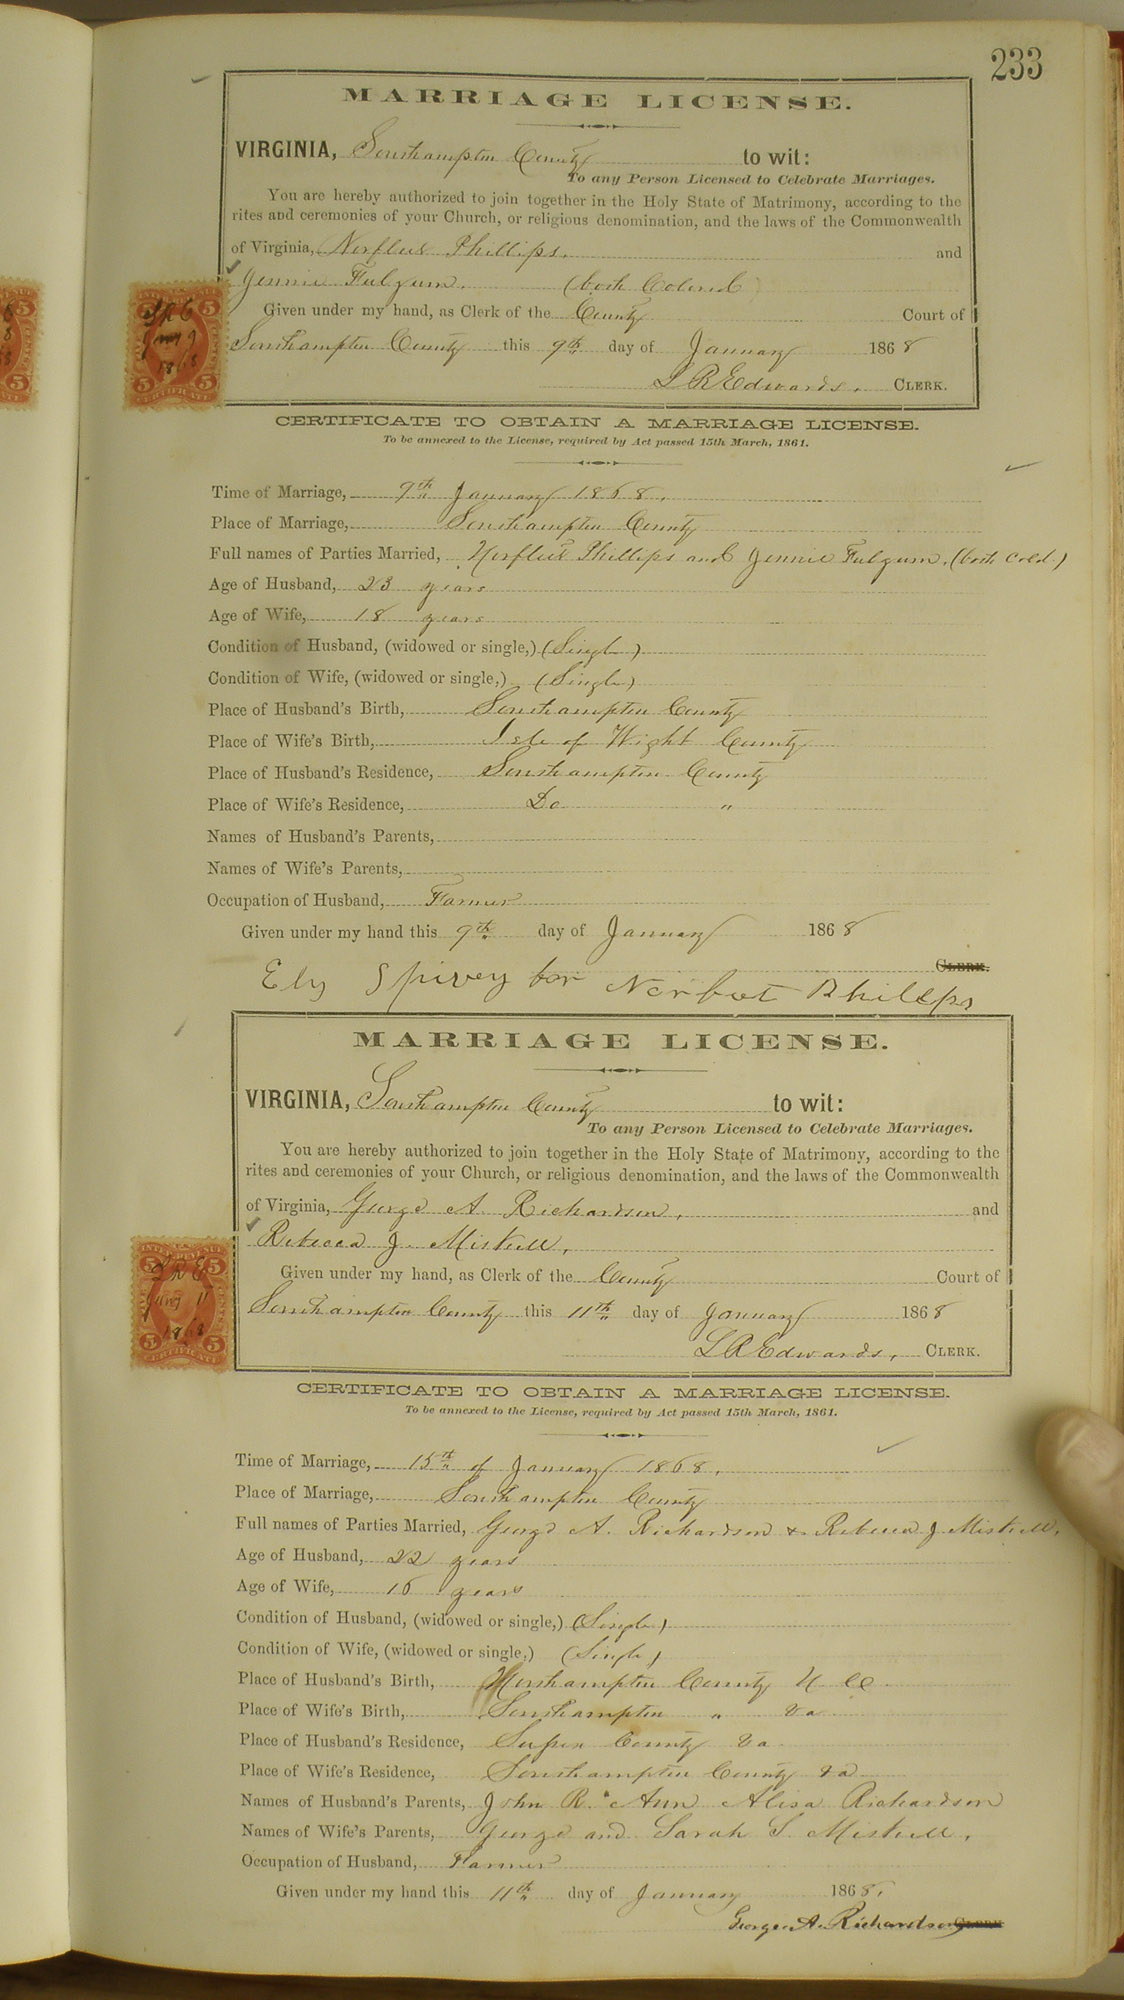 233
MARRIAGE LICENSE.
VIRGINIA, Southampton County to wit:
To any Person Licensed to Celebrate Marriages.
You are hereby authorized to join together in the Holy State of Matrimony, according to the
rites and ceremonies of your Church, or religious denomination, and the laws of the Commonwealth
of Virginia, Norfleus Phillips. and
Jennie Fulgum. (both Colored)
Given under my hand, as Clerk of the County Court of
Southampton County this 9th day of January 1868
L R Edwards. CLERK.
CERTIFICATE TO OBTAIN A MARRIAGE LICENSE.
To be annexed to the License, required by Act passed 15th March, 1861.
Time of Marriage, 9th January 1868.
Place of Marriage, Southampton County
Full names of Parties Married, Norfleus Phillips and Jennie Fulgum. (both Cold.)
Age of Husband, 23 years
Age of Wife, 18 years
Condition of Husband, (widowed or single,) (Single)
Condition of Wife, (widowed or single,) (Single)
Place of Husband's Birth, Southampton County
Place of Wife's Birth, Isle of Wight County
Place of Husband's Residence, Southampton County
Place of Wife's Residence, Do "
Names of Husband's Parents,
Names of Wife's Parents,
Occupation of Husband, Farmer
Given under my hand this 9th day of January 1868
CLERK.
Ely Spivey for Norbut Phillips
MARRIAGE LICENSE.
VIRGINIA, Southampton County to wit:
To any Person Licensed to Celebrate Marriages.
You are hereby authorized to join together in the Holy State of Matrimony, according to the
rites and ceremonies of your Church, or religious denomination, and the laws of the Commonwealth
of Virginia, George A. Richardson, and
Rebecca J. Miskell,
Given under my hand, as Clerk of the County Court of
Southampton County this 11th day of January 1868
L R Edwards, CLERK.
CERTIFICATE TO OBTAIN A MARRIAGE LICENSE.
To be annexed to the License, required by Act passed 15th March, 1861.
Time of Marriage, 15th of January 1868.
Place of Marriage, Southampton County
Full names of Parties Married, George A. Richardson & Rebecca J Miskell,
Age of Husband, 22 years
Age of Wife, 16 years
Condition of Husband, (widowed or single,) (Single)
Condition of Wife, (widowed or single,) (Single)
Place of Husband's Birth, Northampton County N Ca
Place of Wife's Birth, Southampton " Va
Place of Husband's Residence, Sussex County Va.
Place of Wife's Residence, Southampton County Va
Names of Husband's Parents, John R. & Ann Alisa Richardson
Names of Wife's Parents, George and Sarah S. Miskell,
Occupation of Husband, Farmer
Given under my hand this 11th day of January 1868.
George A. Richardson CLERK